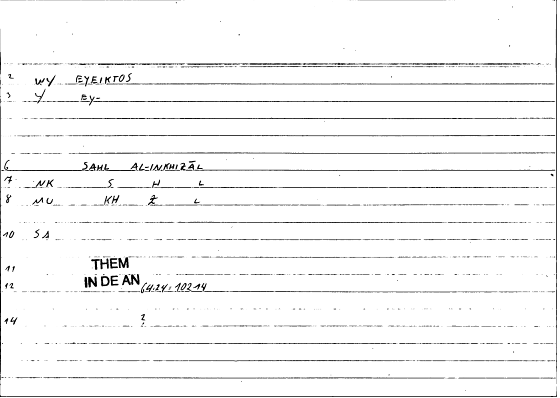 2 WY EYEIKTOS
3 Y EY-
6 SAHL AL-INKHIZĀL
7 NK S H L
8 MU KH Z̄ L
10 SA
11 THEM
12 IN DE AN 64.24 = 102.14
14 ?